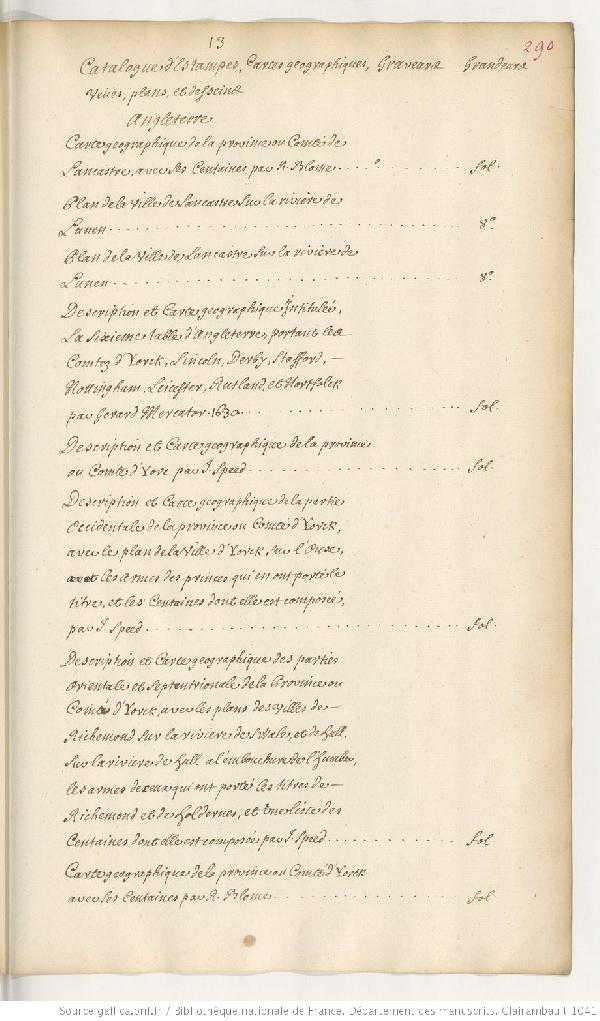 13
290
Catalogue d'Estampes, Cartes geographiques, Graveures Grandeurs
Veües, plans, et desseins
Angleterre
Carte geographique de la province ou Comté de
Lancastre, avec ses Centaines par R. Blome. fol.
Plan de la Ville de Lancastre sur la rivière de
Lunen 8º
Plan de la Ville de Lancastre sur la rivière de
Lunen 8º
Description et Carte geographique Intitulée,
La Sixieme table d'Angleterre, portant les
Comtez d'Yorck, Lincoln, Derby, Stafford, —
Nottingham, Leicester, Rutland, et Nortfolck
par Gerard Mercator. 1630. fol.
Description et Carte geographique de la province
ou Comté d'Yorc par J. Speed fol.
Description et Carte geographique de la partie
Occidentale de la province ou Comté d'Yorck,
avec le plan de la Ville d'Yorck sur l'Ouse,
et les armes des princes qui en ont porté le
titre, et les Centaines dont elle est composée,
par J. Speed fol.
Description et Carte geographique des parties
Orientale et Septentrionale de la Province ou
Comté d'Yorck, avec les plans des Villes de —
Richemond sur la riviere de Swale, et de Hull
sur la riviere de Hull a l'embouchure de l'Humber,
les armes de ceux qui ont porté les titres de —
Richemond et de Holdernes, et une liste des
Centaines dont elle est composée par J. Speed fol.
Carte geographique de la province ou Comté d'Yorck
avec ses Centaines par R. Blome fol.
Source gallica.bnf.fr / Bibliothèque nationale de France. Département des manuscrits. Clairambault 1041